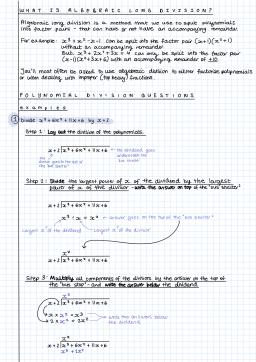 WHAT IS ALGEBRAIC LONG DIVISION?
Algebraic long division is a method that we use to split polynomials
into factor pairs - that can have or not have an accompanying remainder.
For example: x³ + x² - x - 1 can be split into the factor pair (x+1)(x²-1)
without an accompanying remainder.
But x³ + 2x² + 3x + 4 can only be split into the factor pair
(x-1)(x²+3x+6) with an accompanying remainder of +10.
You'll most often be asked to use algebraic division to either factorise polynomials
or when dealing with improper (top heavy) fractions.
POLYNOMIAL DIVISION QUESTIONS
examples
① Divide x³ + 6x² + 11x + 6 by x + 2
Step 1: Lay out the division of the polynomials.
x + 2 | x³ + 6x² + 11x + 6
the dividend goes
underneath the
bus shelter
the
divisor goes to the left of
the bus shelter
Step 2: Divide the largest power of x of the dividend by the largest
power of x of the divisor - write the answer on top of the "bus shelter"
x + 2 | x³ + 6x² + 11x + 6
x³ ÷ x = x²
answer goes on the top of the "bus shelter"
largest x of the dividend
largest x of the divisor
x²
x + 2 | x³ + 6x² + 11x + 6
Step 3: Multiply all components of the divisor by the answer on the top of
the "bus stop" - and write the answer below the dividend
x²
x + 2 | x³ + 6x² + 11x + 6
x × x² = x³
2 × x² = 2x²
write the answers below
the dividend
x²
x + 2 | x³ + 6x² + 11x + 6
x³ + 2x²